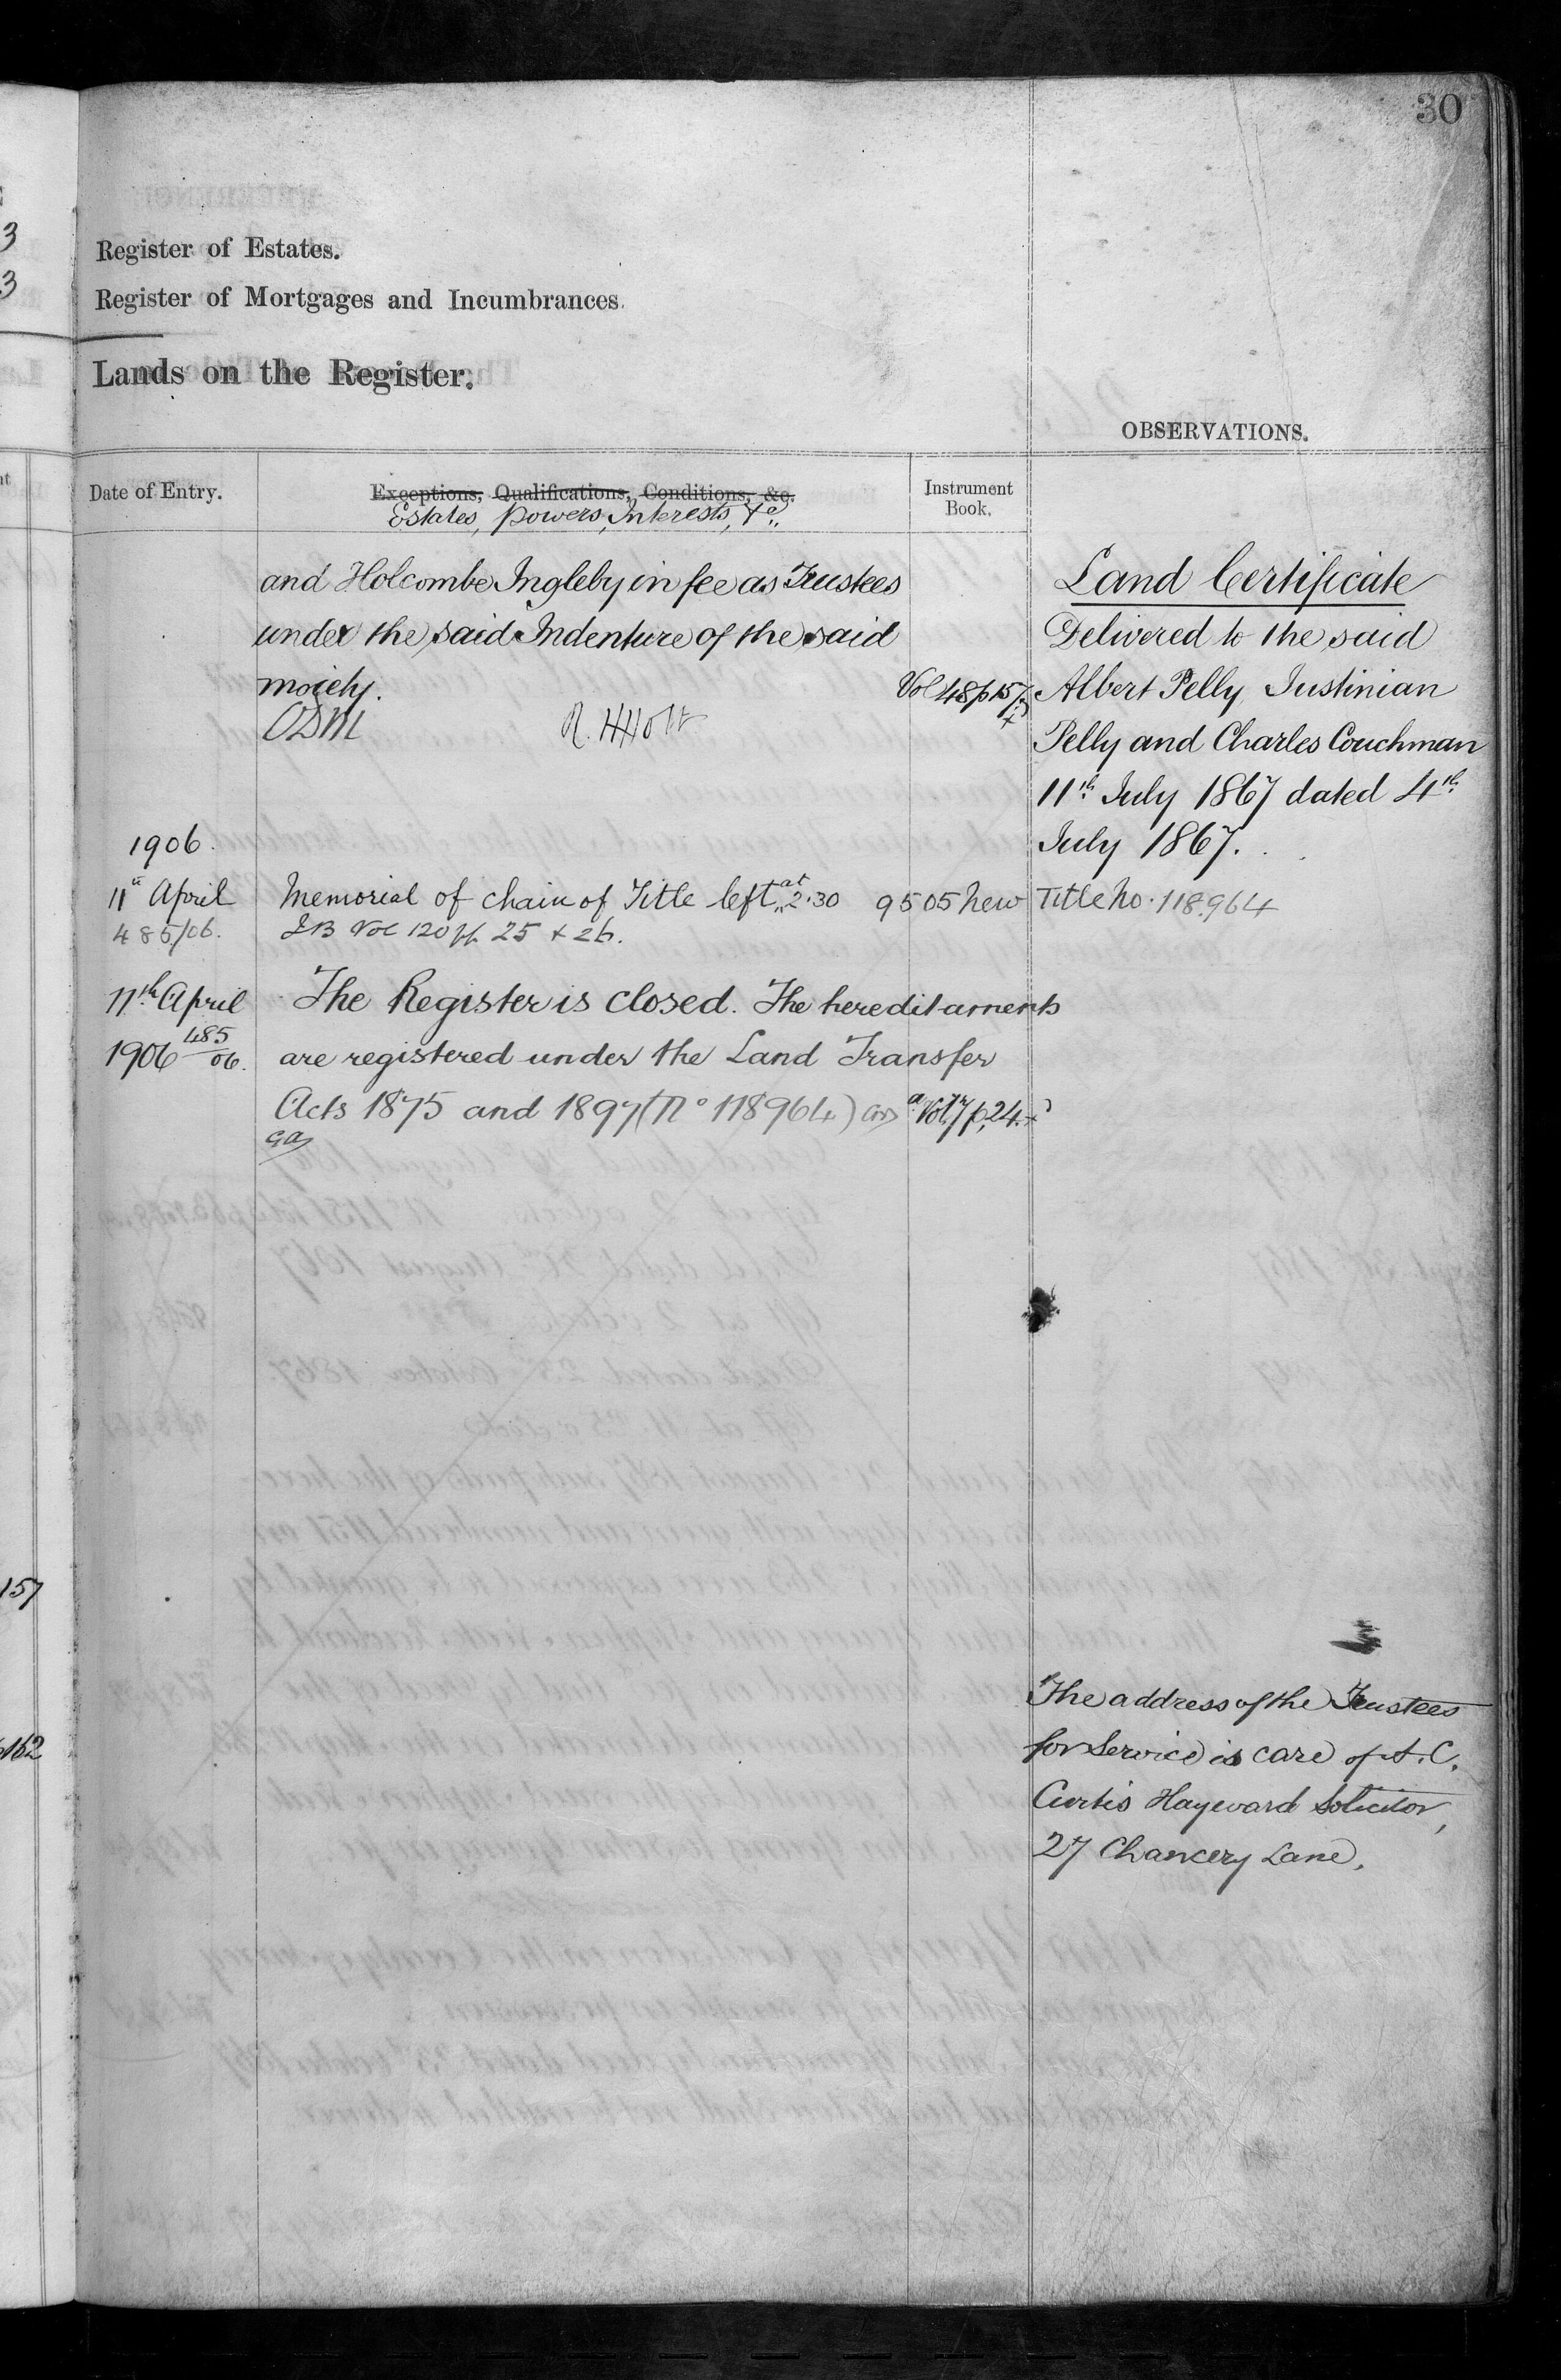 30
Register of Estates.
Register of Mortgages and Incumbrances.
Lands on the Register.
OBSERVATIONS.
Date of Entry.
Exceptions, Qualifications, Conditions, &c.
Estates, Powers, Interests, &c.
Instrument
Book.
and Holcombe Ingleby in fee as Trustees
under the said Indenture of the said
moiety.
Vol 48 p 157
R. H Holt
1906.
11th April
485/06.
Memorial of chain of Title left at 2.30
9505 New Title No. 118.964
IB Vol 120 pp 25 + 26.
11th April
1906 485/06.
The Register is closed. The hereditaments
are registered under the Land Transfer
Acts 1875 and 1897 (No 118964)
Land Certificate
Delivered to the said
Albert Pelly Justinian
Pelly and Charles Couchman
11th July 1867 dated 4th
July 1867.
The address of the Trustees
for Service is care of A. C.
Curtis Hayward Solicitor,
27 Chancery Lane.
3
3
157
162